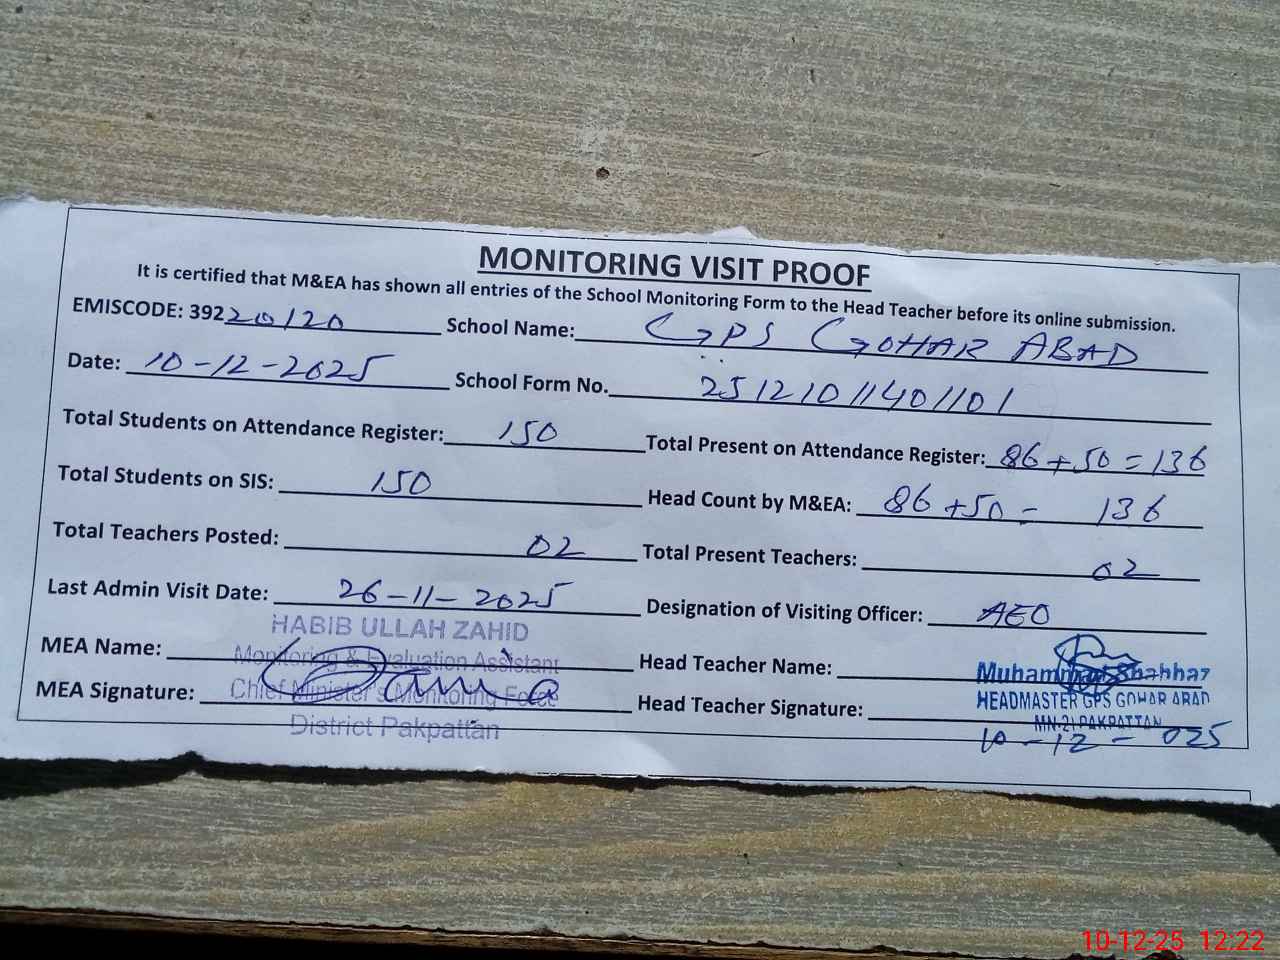 MONITORING VISIT PROOF
It is certified that M&EA has shown all entries of the School Monitoring Form to the Head Teacher before its online submission.
EMISCODE: 39220120 School Name: GPS GOHAR ABAD
Date: 10-12-2025 School Form No. 25121011401101
Total Students on Attendance Register: 150 Total Present on Attendance Register: 86+50=136
Total Students on SIS: 150 Head Count by M&EA: 86+50= 136
Total Teachers Posted: 02 Total Present Teachers: 02
Last Admin Visit Date: 26-11-2025 Designation of Visiting Officer: AEO
HABIB ULLAH ZAHID
MEA Name: Monitoring & Evaluation Assistant Head Teacher Name: Muhammad Shahbaz
MEA Signature: Chief Minister's Monitoring Force Head Teacher Signature: HEADMASTER GPS GOHAR ABAD
District Pakpattan MN-21 PAKPATTAN
10-12-025
10-12-25 12:22